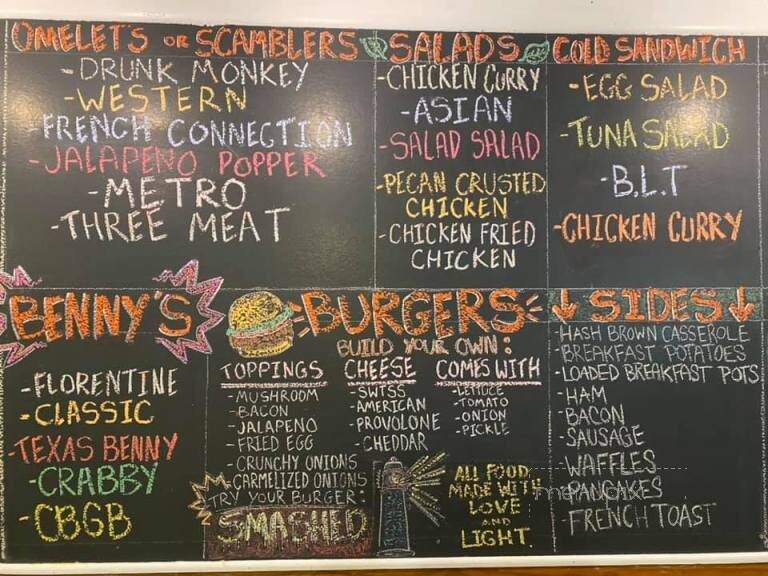 OMELETS OR SCAMBLERS
-DRUNK MONKEY
-WESTERN
-FRENCH CONNECTION
-JALAPENO POPPER
-METRO
-THREE MEAT
SALADS
-CHICKEN CURRY
-ASIAN
-SALAD SALAD
-PECAN CRUSTED
CHICKEN
-CHICKEN FRIED
CHICKEN
COLD SANDWICH
-EGG SALAD
-TUNA SALAD
-B.L.T
-CHICKEN CURRY
BENNY'S
-FLORENTINE
-CLASSIC
-TEXAS BENNY
-CRABBY
-CBGB
BURGERS
BUILD YOUR OWN:
TOPPINGS
-MUSHROOM
-BACON
-JALAPENO
-FRIED EGG
-CRUNCHY ONIONS
-CARMELIZED ONIONS
TRY YOUR BURGER:
SMASHED
CHEESE
-SWISS
-AMERICAN
-PROVOLONE
-CHEDDAR
COMES WITH
-LETTUCE
-TOMATO
-ONION
-PICKLE
ALL FOOD
MADE WITH
LOVE
AND
LIGHT.
SIDES
-HASH BROWN CASSEROLE
-BREAKFAST POTATOES
-LOADED BREAKFAST POTS
-HAM
-BACON
-SAUSAGE
-WAFFLES
-PANCAKES
-FRENCH TOAST
menupix